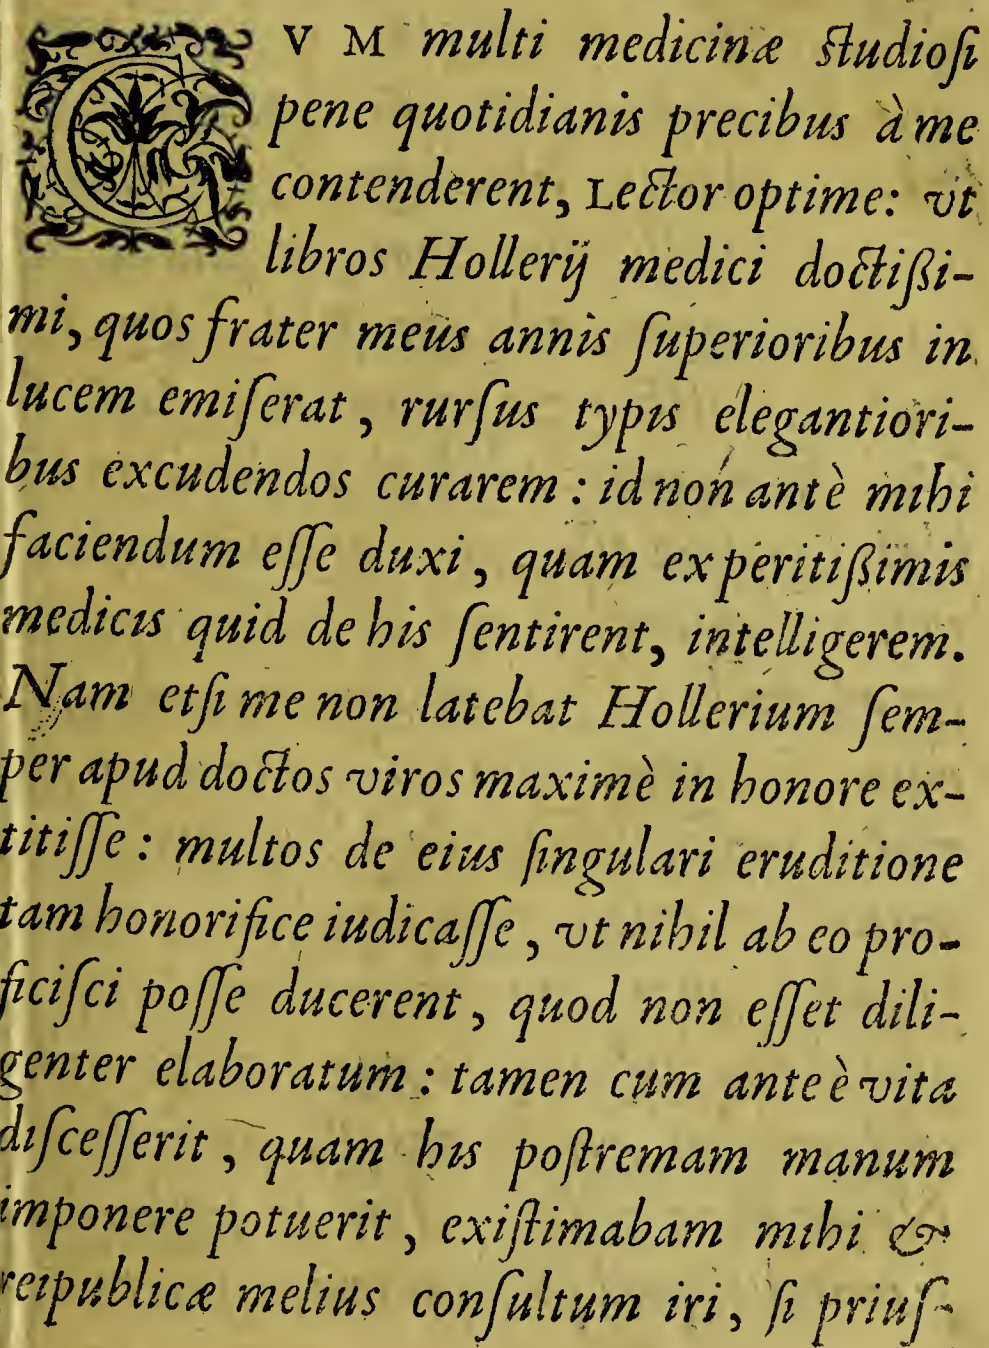 CVM multi medicinæ ſtudioſi
pene quotidianis precibus à me
contenderent, Lector optime: vt
libros Hollerij medici doctißi-
mi, quos frater meus annis ſuperioribus in
lucem emiſerat, rurſus typis elegantiori-
bus excudendos curarem: id non antè mihi
faciendum eſſe duxi, quam ex peritißimis
medicis quid de his ſentirent, intelligerem.
Nam etſi me non latebat Hollerium ſem-
per apud doctos viros maximè in honore ex-
titiſſe: multos de eius ſingulari eruditione
tam honorifice iudicaſſe, vt nihil ab eo pro-
ficiſci poſſe ducerent, quod non eſſet dili-
genter elaboratum: tamen cum ante è vita
diſceſſerit, quam his poſtremam manum
imponere potuerit, exiſtimabam mihi &
reipublicæ melius conſultum iri, ſi priuſ-